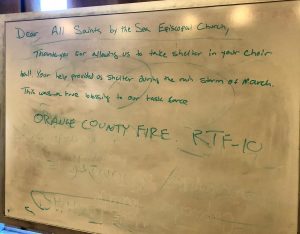 Dear All Saints by the Sea Episcopal Church,
Thank you for allowing us to take shelter in your Choir
hall. Your help provided us shelter during the rain storm of March.
This was a true blessing to our task force
ORANGE COUNTY FIRE. RTF-10